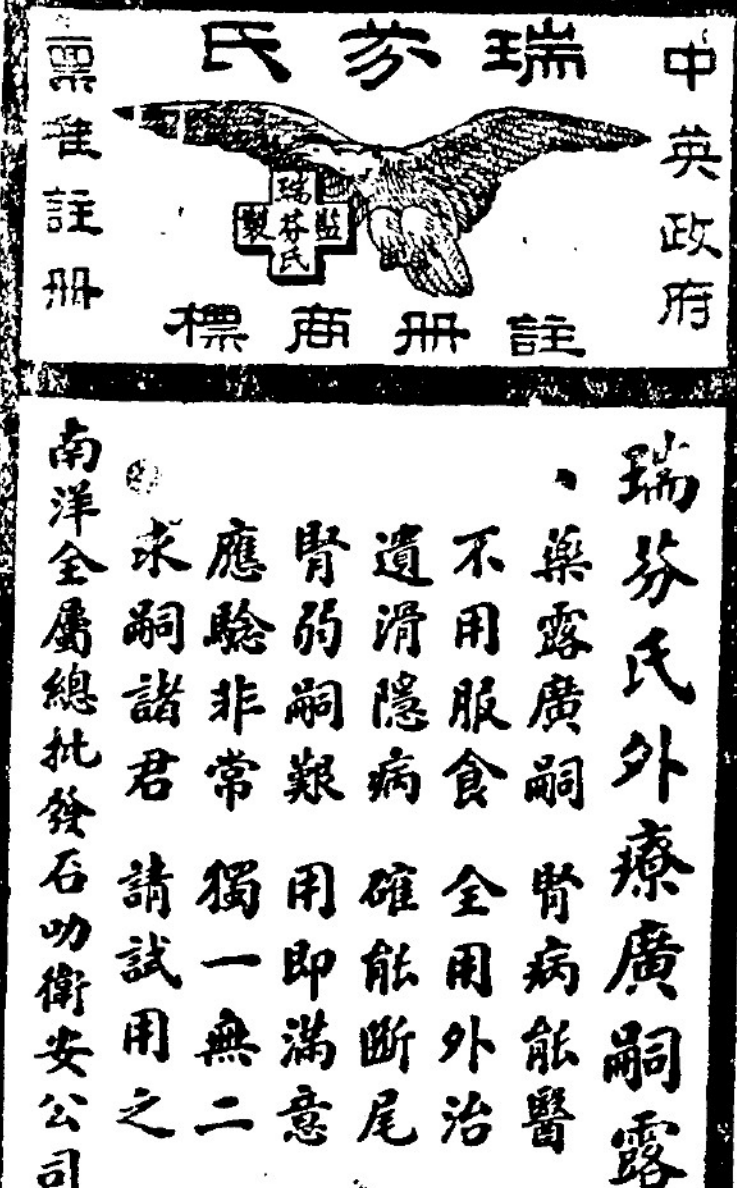 瑞芬氏
中英政府
稟准註冊
瑞芬氏
監製
註冊商標
瑞芬氏外療廣嗣露
藥露廣嗣 腎病能醫
不用服食 全用外治
遺滑隱病 確能斷尾
腎弱嗣艱 用即滿意
應驗非常 獨一無二
求嗣諸君 請試用之
南洋全屬總批發石叻衛安公司